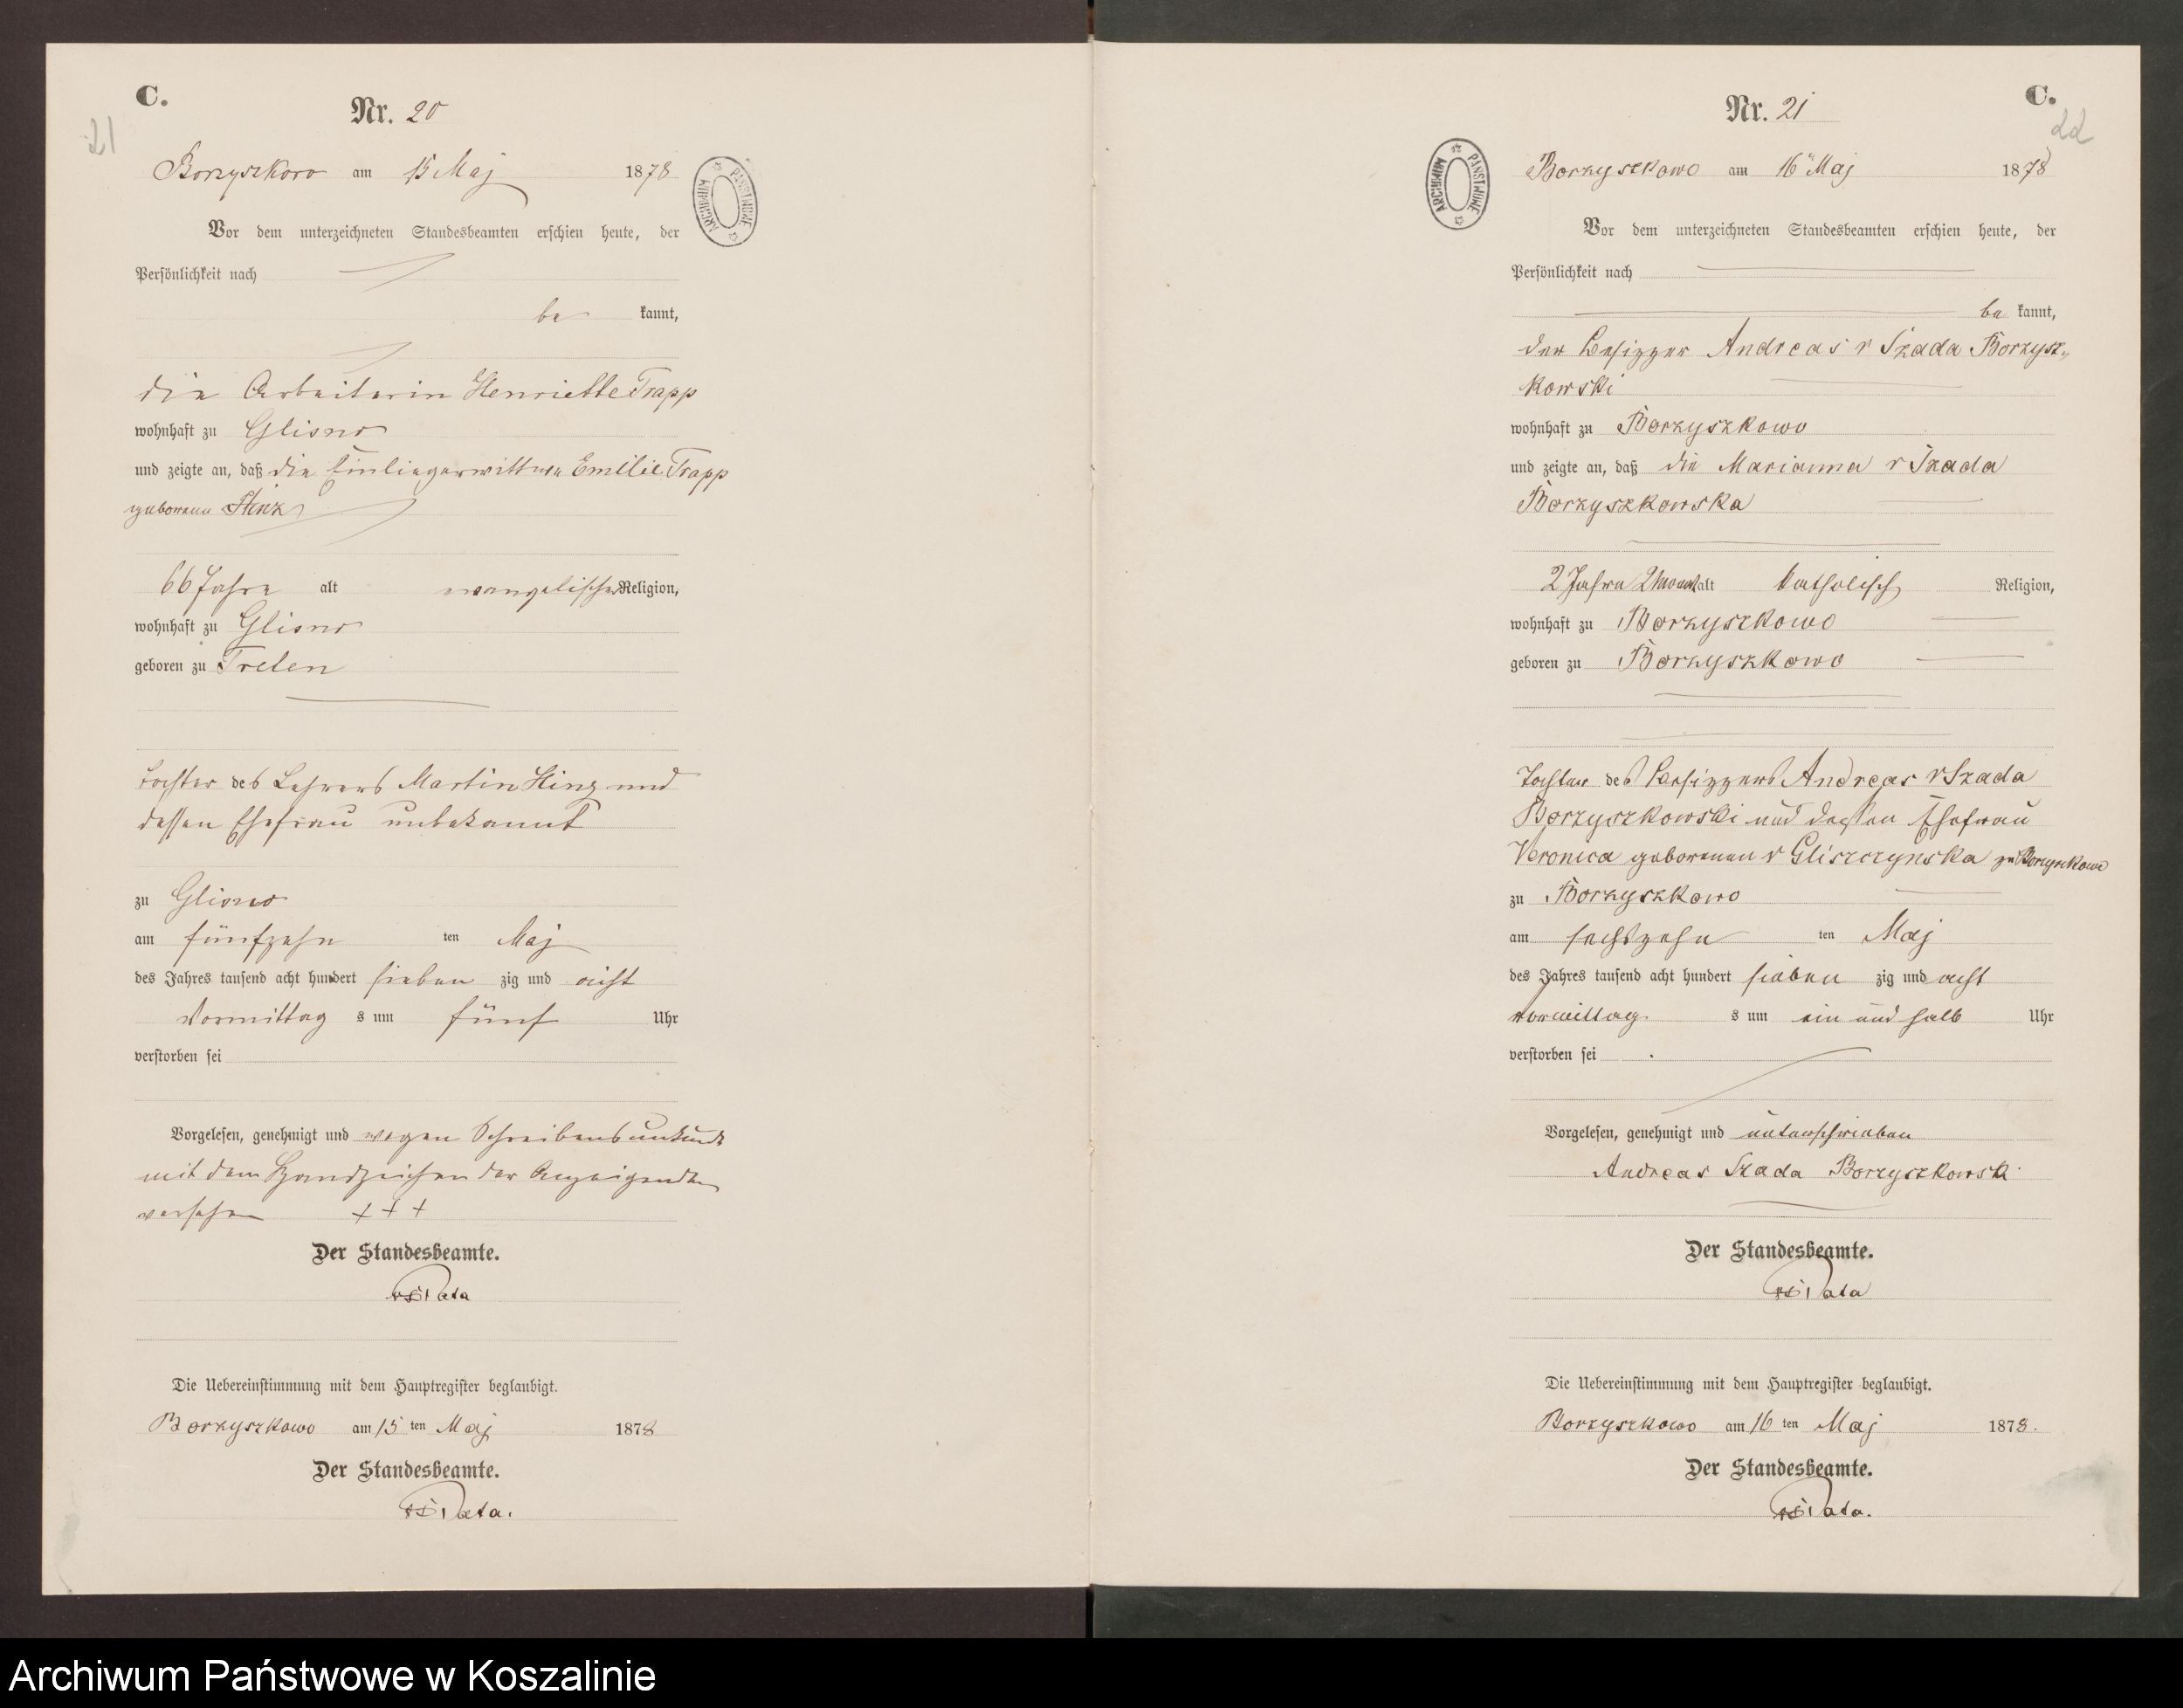 C.
21
Nr. 20
Borzyszkowo am 15 Maj 1878
ARCHIWUM PAŃSTWOWE
Vor dem unterzeichneten Standesbeamten erschien heute, der
Persönlichkeit nach
be kannt,
die Arbeiterin Henriette Trapp
wohnhaft zu Glisno
und zeigte an, daß die Einliegerwittwe Emilie Trapp
geborene Hinz
66 Jahre alt evangelischer Religion,
wohnhaft zu Glisno
geboren zu Treten
Tochter des Lehrers Martin Hinz und
dessen Ehefrau unbekannt
zu Glisno
am fünfzehn ten Maj
des Jahres tausend acht hundert sieben zig und acht
Vormittag s um fünf Uhr
verstorben sei
Vorgelesen, genehmigt und wegen Schreibensunkunde
mit dem Handzeichen der Anzeigenden
versehen + + +
Der Standesbeamte.
Die Uebereinstimmung mit dem Hauptregister beglaubigt.
Borzyszkowo am 15 ten Maj 1878
Der Standesbeamte.
C.
22
Nr. 21
Borzyszkowo am 16 Maj 1878
ARCHIWUM PAŃSTWOWE
Vor dem unterzeichneten Standesbeamten erschien heute, der
Persönlichkeit nach
be kannt,
der Besitzer Andreas v Szada Borzysz„
kowski
wohnhaft zu Borzyszkowo
und zeigte an, daß die Marianna v Szada
Borzyszkowska
2 Jahre 2 Monat alt katholisch Religion,
wohnhaft zu Borzyszkowo
geboren zu Borzyszkowo
Tochter des Besitzers Andreas v Szada
Borzyszkowski und dessen Ehefrau
Veronica geborenen v Gliszczynska zu Borzyszkowo
zu Borzyszkowo
am sechszehn ten Maj
des Jahres tausend acht hundert sieben zig und acht
vormittag s um ein und halb Uhr
verstorben sei
Vorgelesen, genehmigt und unterschrieben
Andreas Szada Borzyszkowski
Der Standesbeamte.
Die Uebereinstimmung mit dem Hauptregister beglaubigt.
Borzyszkowo am 16 ten Maj 1878.
Der Standesbeamte.
Archiwum Państwowe w Koszalinie